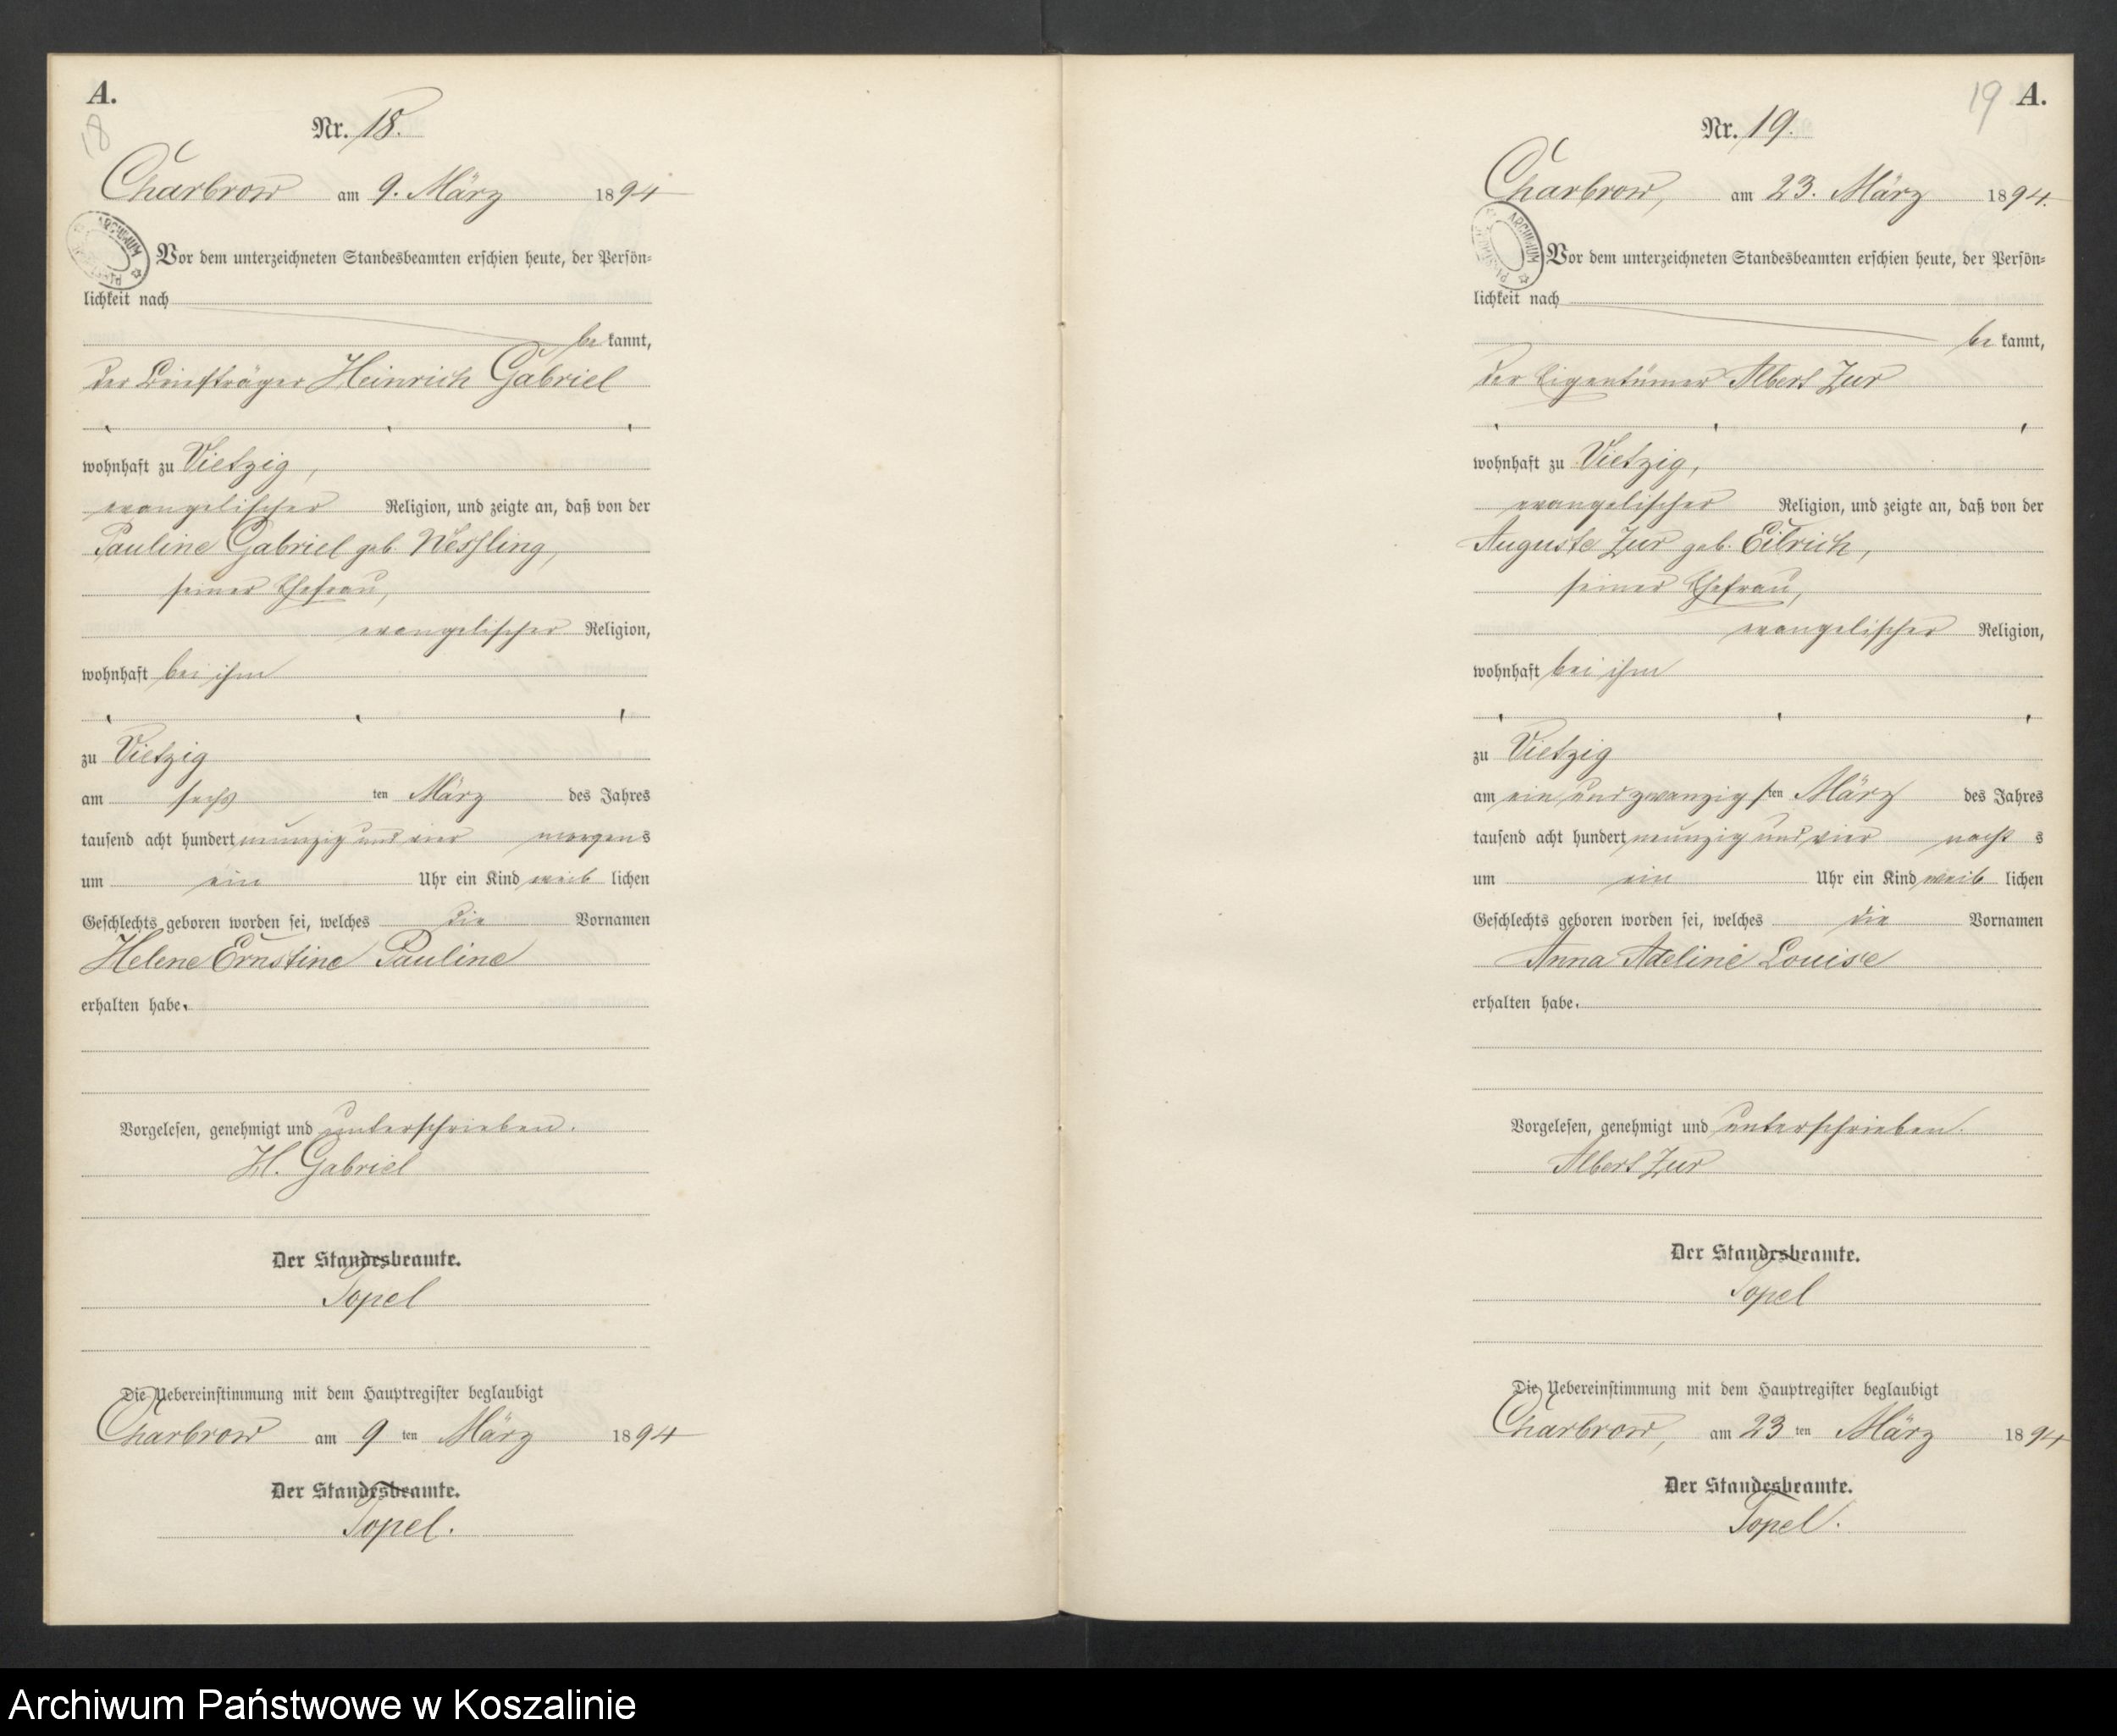 A.
18
Nr. 18.
Charbrow am 9. März 1894
Vor dem unterzeichneten Standesbeamten erschien heute, der Persön-
lichkeit nach
be kannt,
der Briefträger Heinrich Gabriel
wohnhaft zu Vietzig,
evangelischer Religion, und zeigte an, daß von der
Pauline Gabriel geb. Wessling,
seiner Ehefrau,
evangelischer Religion,
wohnhaft bei ihm
zu Vietzig
am sechs ten März des Jahres
tausend acht hundert neunzig und vier morgens
um ein Uhr ein Kind weib lichen
Geschlechts geboren worden sei, welches die Vornamen
Helene Ernstine Pauline
erhalten habe.
Vorgelesen, genehmigt und unterschrieben.
H. Gabriel
Der Standesbeamte.
Topel
Die Uebereinstimmung mit dem Hauptregister beglaubigt
Charbrow am 9 ten März 1894
Der Standesbeamte.
Topel.
19 A.
Nr. 19.
Charbrow, am 23. März 1894.
Vor dem unterzeichneten Standesbeamten erschien heute, der Persön-
lichkeit nach
be kannt,
der Eigentümer Albert Zur
wohnhaft zu Vietzig,
evangelischer Religion, und zeigte an, daß von der
Auguste Zur geb. Eilrich,
seiner Ehefrau,
evangelischer Religion,
wohnhaft bei ihm
zu Vietzig
am ein und zwanzigs ten März des Jahres
tausend acht hundert neunzig und vier nacht s
um ein Uhr ein Kind weib lichen
Geschlechts geboren worden sei, welches die Vornamen
Anna Adeline Louise
erhalten habe.
Vorgelesen, genehmigt und unterschrieben.
Albert Zur
Der Standesbeamte.
Topel
Die Uebereinstimmung mit dem Hauptregister beglaubigt
Charbrow, am 23 ten März 1894
Der Standesbeamte.
Topel.
Archiwum Państwowe w Koszalinie